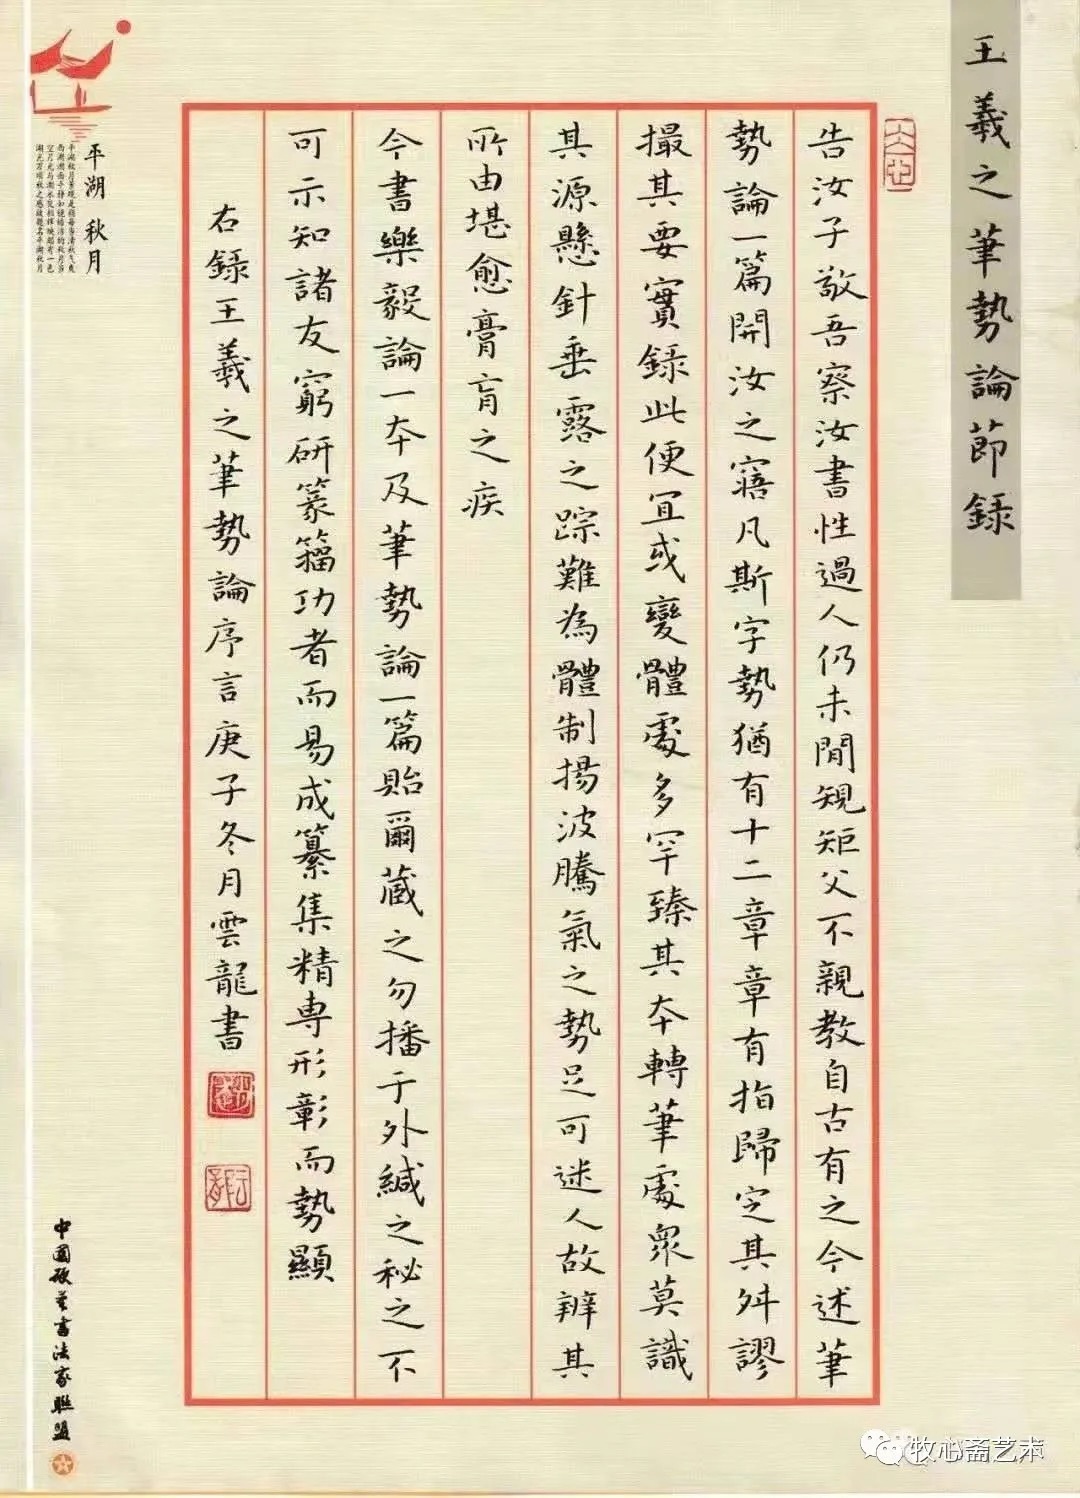 王羲之筆勢論節録
告汝子敬吾察汝書性過人仍未閒規矩父不親教自古有之今述筆
勢論一篇開汝之寤凡斯字勢猶有十二章章有指歸定其舛謬
撮其要實録此便宜或變體處多罕臻其本轉筆處衆莫識
其源懸針垂露之踪難為體制揚波騰氣之勢足可迷人故辨其
所由堪愈膏肓之疾
今書樂毅論一本及筆勢論一篇貽爾藏之勿播于外緘之秘之不
可示知諸友窮研篆籀功者而易成纂集精専形彰而勢顯
右録王羲之筆勢論序言庚子冬月雲龍書
平湖 秋月
中國硬筆書法家聯盟
牧心斋艺术